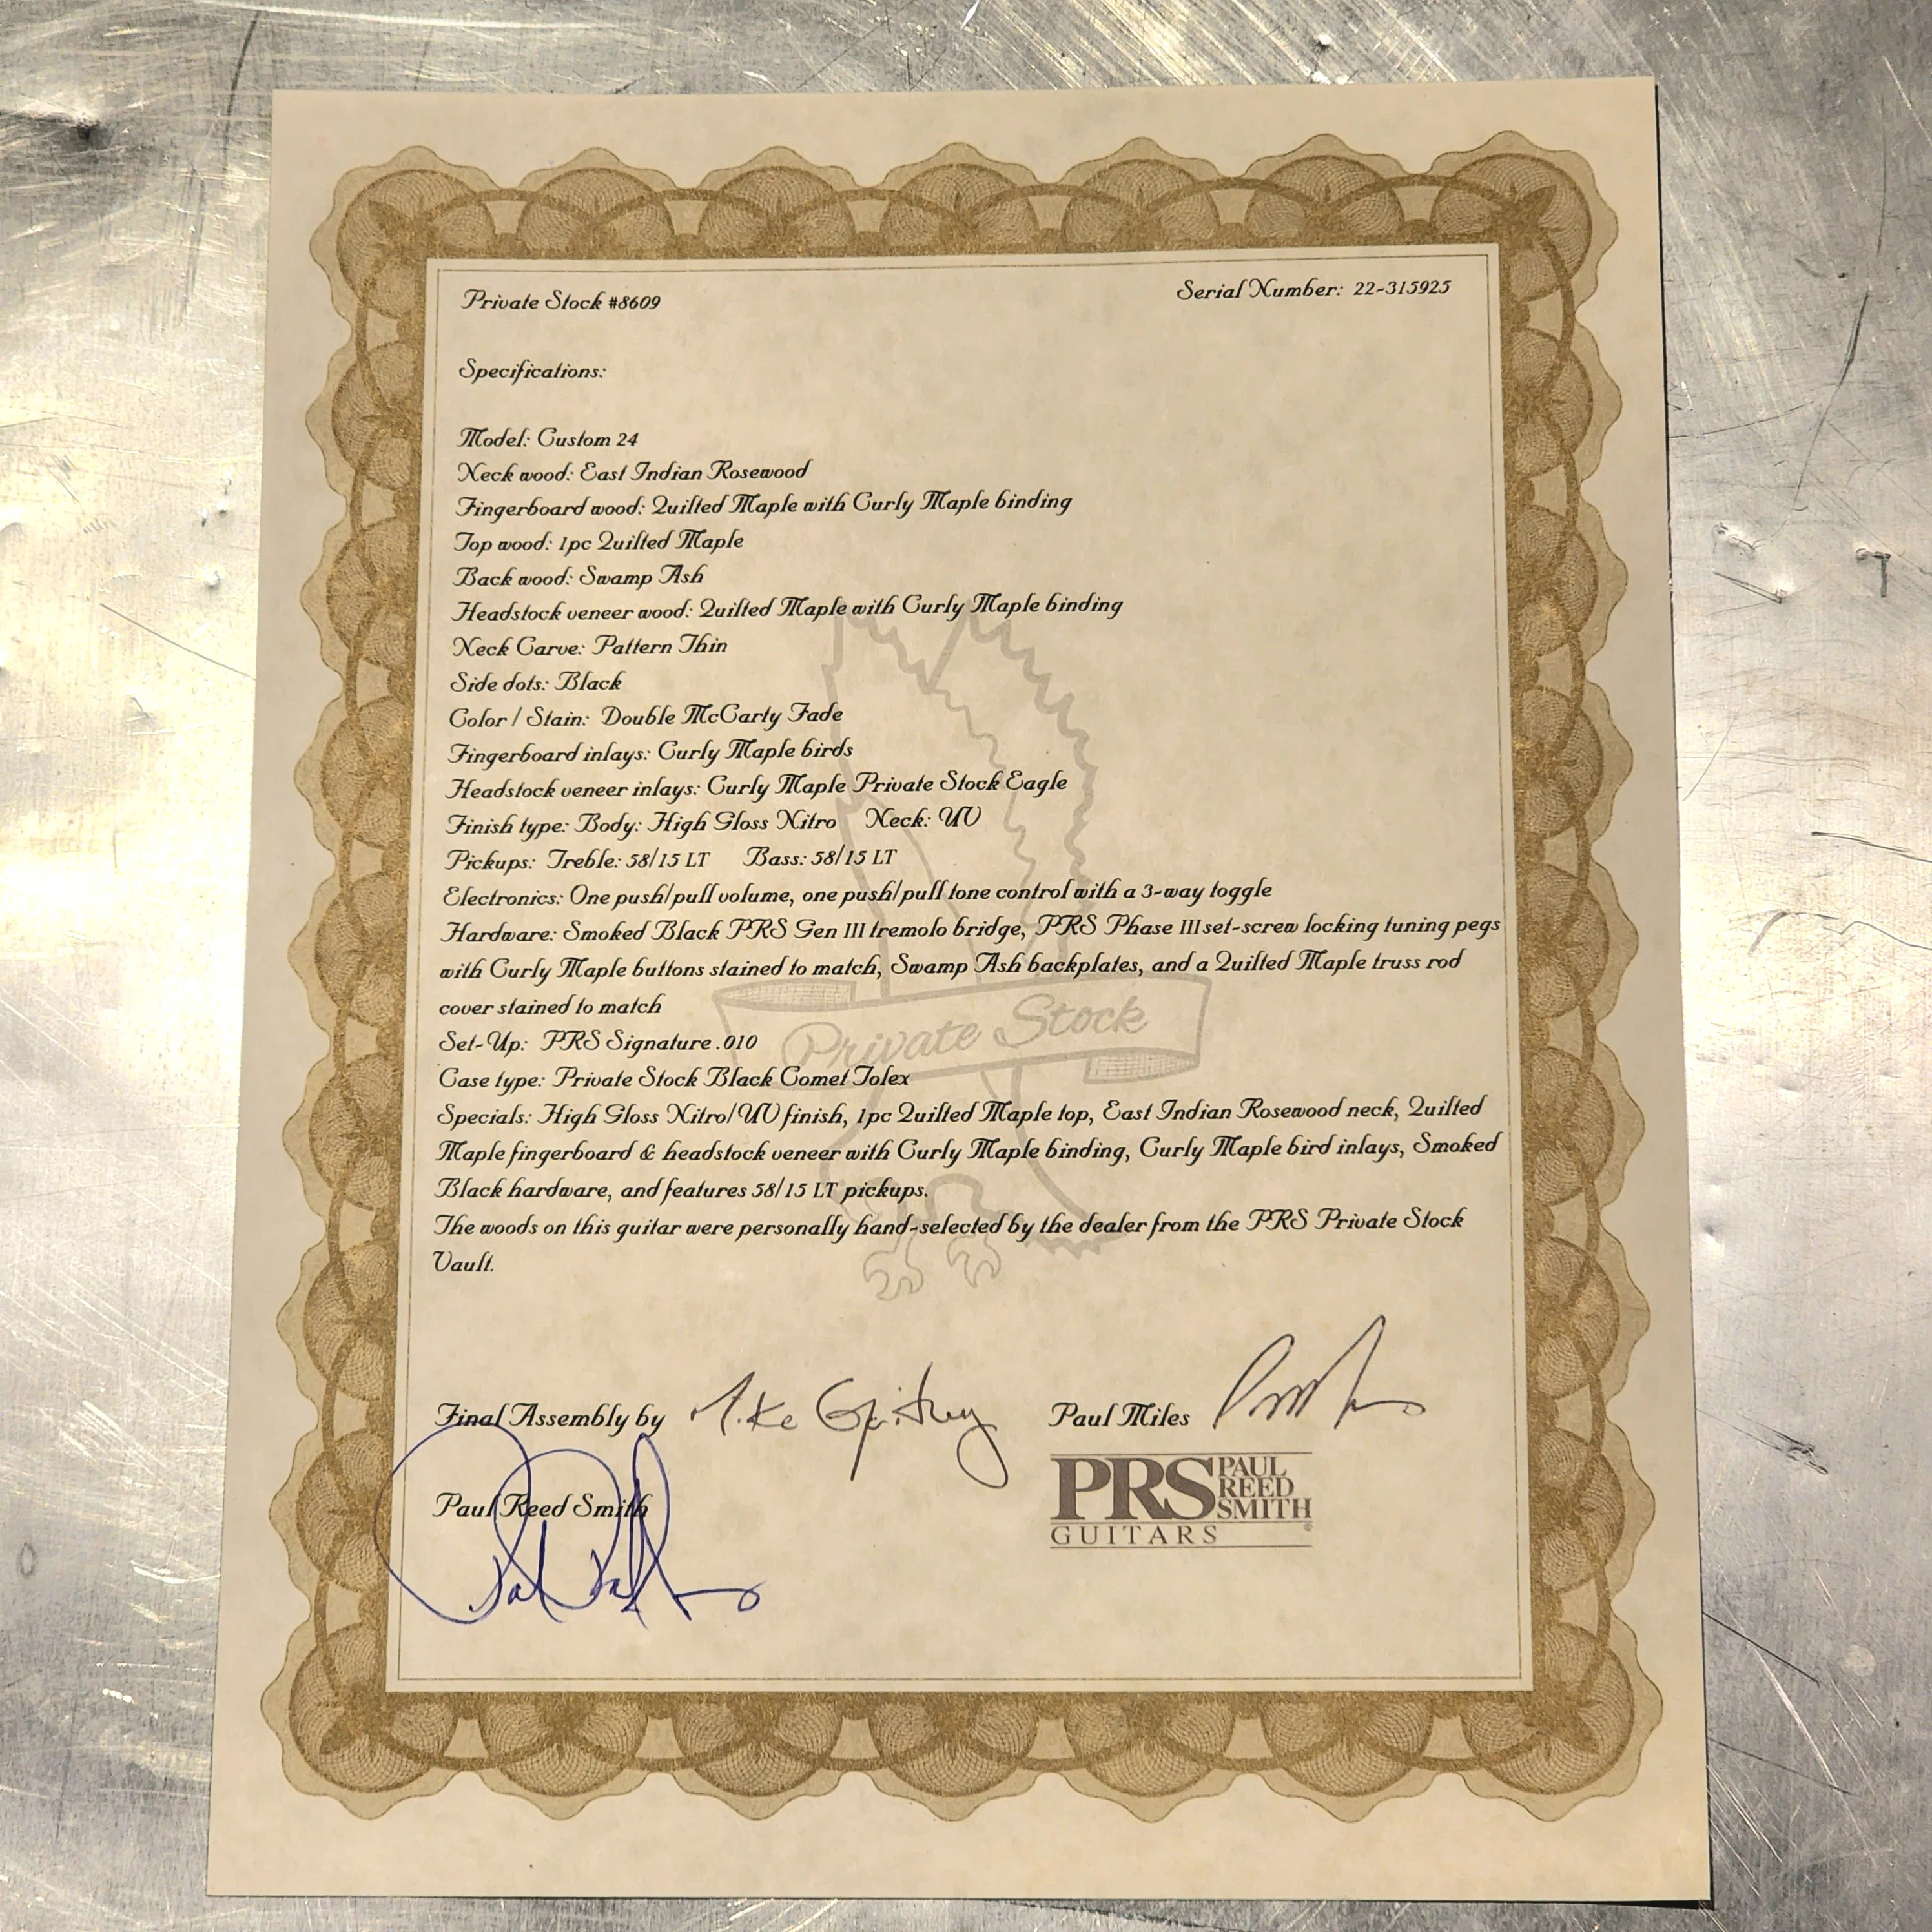 Private Stock #8609
Serial Number: 22-315925
Specifications:
Model: Custom 24
Neck wood: East Indian Rosewood
Fingerboard wood: Quilted Maple with Curly Maple binding
Top wood: 1pc Quilted Maple
Back wood: Swamp Ash
Headstock veneer wood: Quilted Maple with Curly Maple binding
Neck Carve: Pattern Thin
Side dots: Black
Color / Stain: Double McCarty Fade
Fingerboard inlays: Curly Maple birds
Headstock veneer inlays: Curly Maple Private Stock Eagle
Finish type: Body: High Gloss Nitro Neck: UV
Pickups: Treble: 58/15 LT Bass: 58/15 LT
Electronics: One push/pull volume, one push/pull tone control with a 3-way toggle
Hardware: Smoked Black PRS Gen III tremolo bridge, PRS Phase III set-screw locking tuning pegs
with Curly Maple buttons stained to match, Swamp Ash backplates, and a Quilted Maple truss rod
cover stained to match
Private Stock
Set-Up: PRS Signature .010
Case type: Private Stock Black Comet Tolex
Specials: High Gloss Nitro/UV finish, 1pc Quilted Maple top, East Indian Rosewood neck, Quilted
Maple fingerboard & headstock veneer with Curly Maple binding, Curly Maple bird inlays, Smoked
Black hardware, and features 58/15 LT pickups.
The woods on this guitar were personally hand-selected by the dealer from the PRS Private Stock
Vault.
Final Assembly by Mike
Paul Miles
Paul Reed Smith
PRS PAUL
REED
SMITH
GUITARS